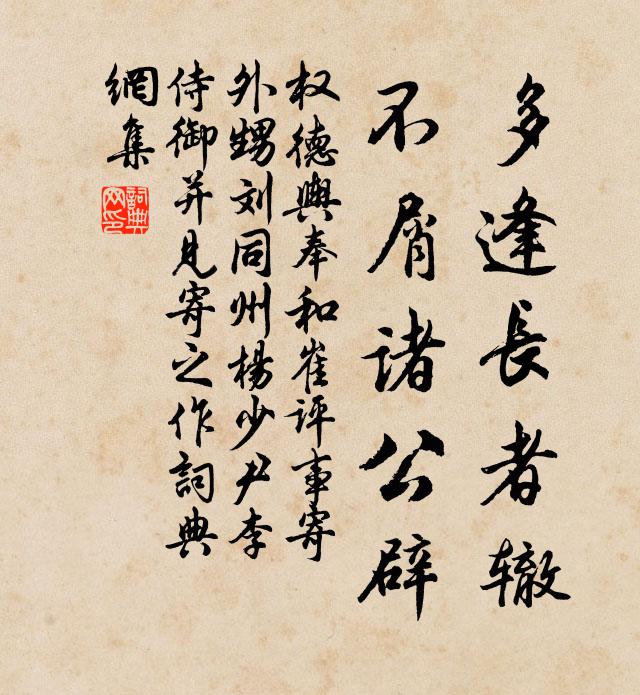 多逢長者辙
不屑诸公辟
权德輿奉和崔评事寄
外甥刘同州楊少尹李
侍御并見寄之作詞典
網集
詞典
网印